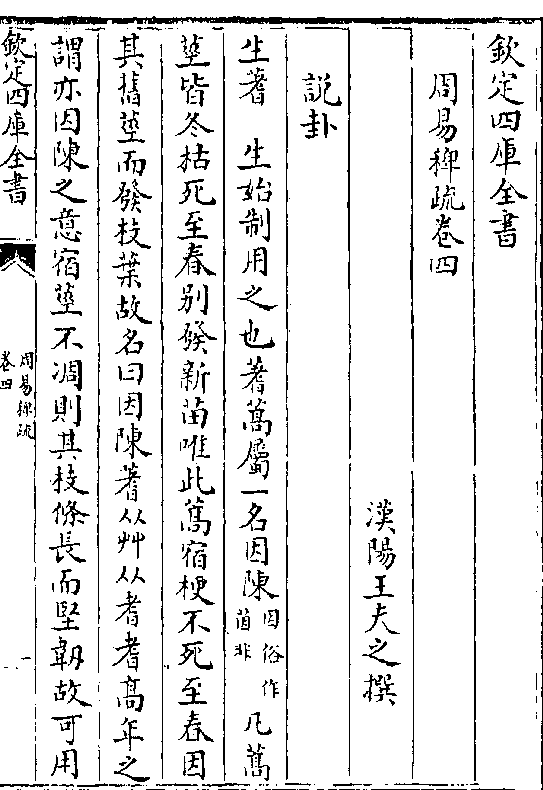 欽定四庫全書
周易稗疏卷四
漢陽王夫之撰
說卦
生蓍　生始制用之也蓍蒿屬一名因陳因俗作茵非凡蒿
莖皆冬枯死至春别發新苗唯此蒿宿梗不死至春因
其舊莖而發枝葉故名曰因陳蓍从艸从耆耆髙年之
謂亦因陳之意宿莖不凋則其枝條長而堅韌故可用
欽定四庫全書
周易稗疏
卷四
一